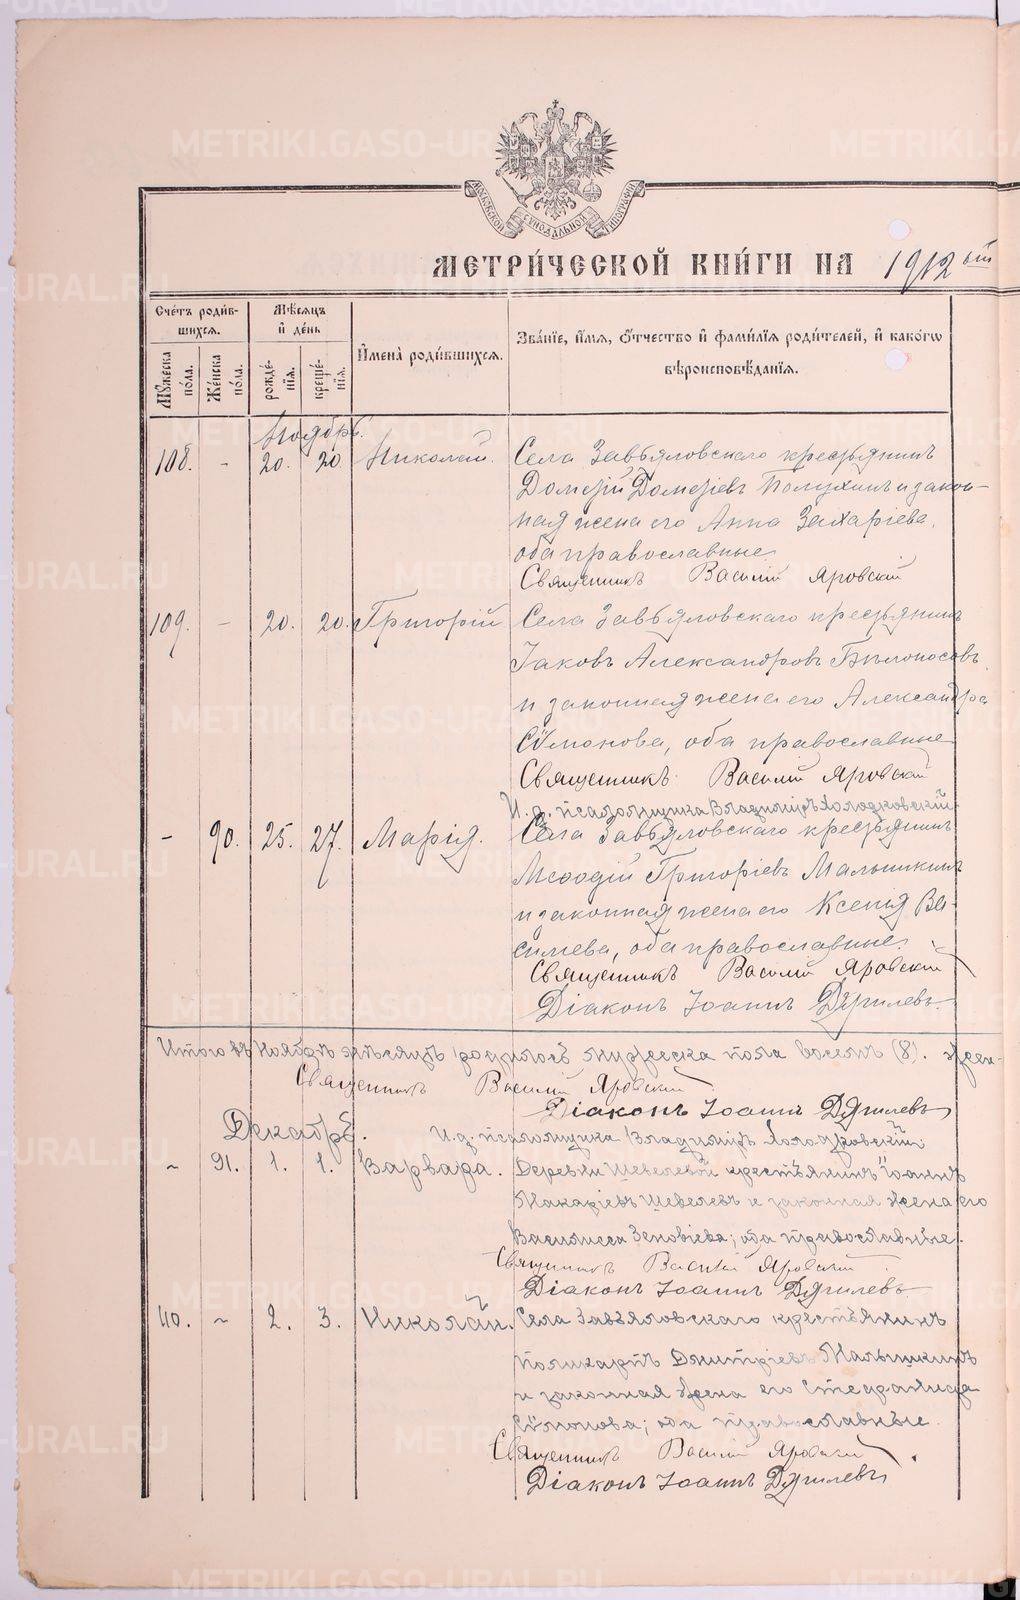 METRIKI.GASO-URAL.RU
МОСКОВСКОЙ СѴНОДАЛЬНОЙ ТИПОГРАФІИ
МЕТРИ́ЧЕСКОЙ КНИ́ГИ НА 1912 ый
Сче́тъ роди́вшихся.
Мꙋ́жеска по́ла.
Же́нска по́ла.
Мѣ́сяцъ и де́нь
рожде́нїя.
креще́нїя.
И҆мена̀ роди́вшихся.
Зва́нїе, и҆́мя, ѻ҆́тчество и҆ фами́лїя роди́телей, и҆ како́гѡ
вѣроисповѣ́данїя.
Ноябрь.
108. - 20. 20. Николай. Села Завьяловскаго крестьянинъ
Дометій Дометіевъ Полухинъ и закон-
ная жена его Анна Захаріева,
оба православные
Священникъ Василій Яровскій
109. - 20. 20. Григорій Села Завьяловскаго крестьянинъ
Іаковъ Александровъ Бѣлоносовъ
и законная жена его Александра
Сѵмонова, оба православные
Священникъ Василій Яровскій
И. д. псаломщика Владиміръ Холодковскій
- 90. 25. 27. Марія. Села Завьяловскаго крестьянинъ
Меѳодій Григоріевъ Малышкинъ
и законная жена его Ксенія Ва-
сильева, оба православные.
Священникъ Василій Яровскій
Діаконъ Іоаннъ Дягилевъ.
Итого въ Ноябрѣ мѣсяцѣ родилось мужеска пола восемь (8). жен-
Священникъ Василій Яровскій
Діаконъ Іоаннъ Дягилевъ
Декабрь. И. д. псаломщика Владиміръ Холодковскій
- 91. 1. 1. Варвара. Деревни Шевелевой крестьянинъ Іоаннъ
Макаріевъ Шевелевъ и законная жена его
Василисса Зеновіева; оба православные.
Священникъ Василій Яровскій
Діаконъ Іоаннъ Дягилевъ.
110. - 2. 3. Николай. Села Завьяловскаго крестьянинъ
Поликарпъ Димитріевъ Малышкинъ
и законная жена его Стефанида
Сѵмонова; оба православные.
Священникъ Василій Яровскій
Діаконъ Іоаннъ Дягилевъ